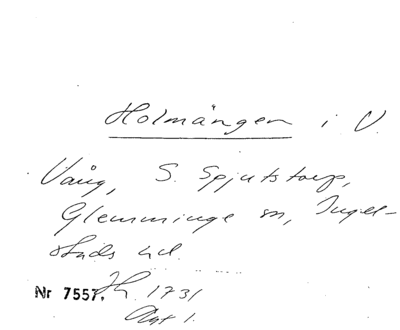 Holmängen i V.
Vång, S. Spjutstorp,
Glemminge sn, Ingel-
stads hd.
Nr 7557. 1731
Akt 1.